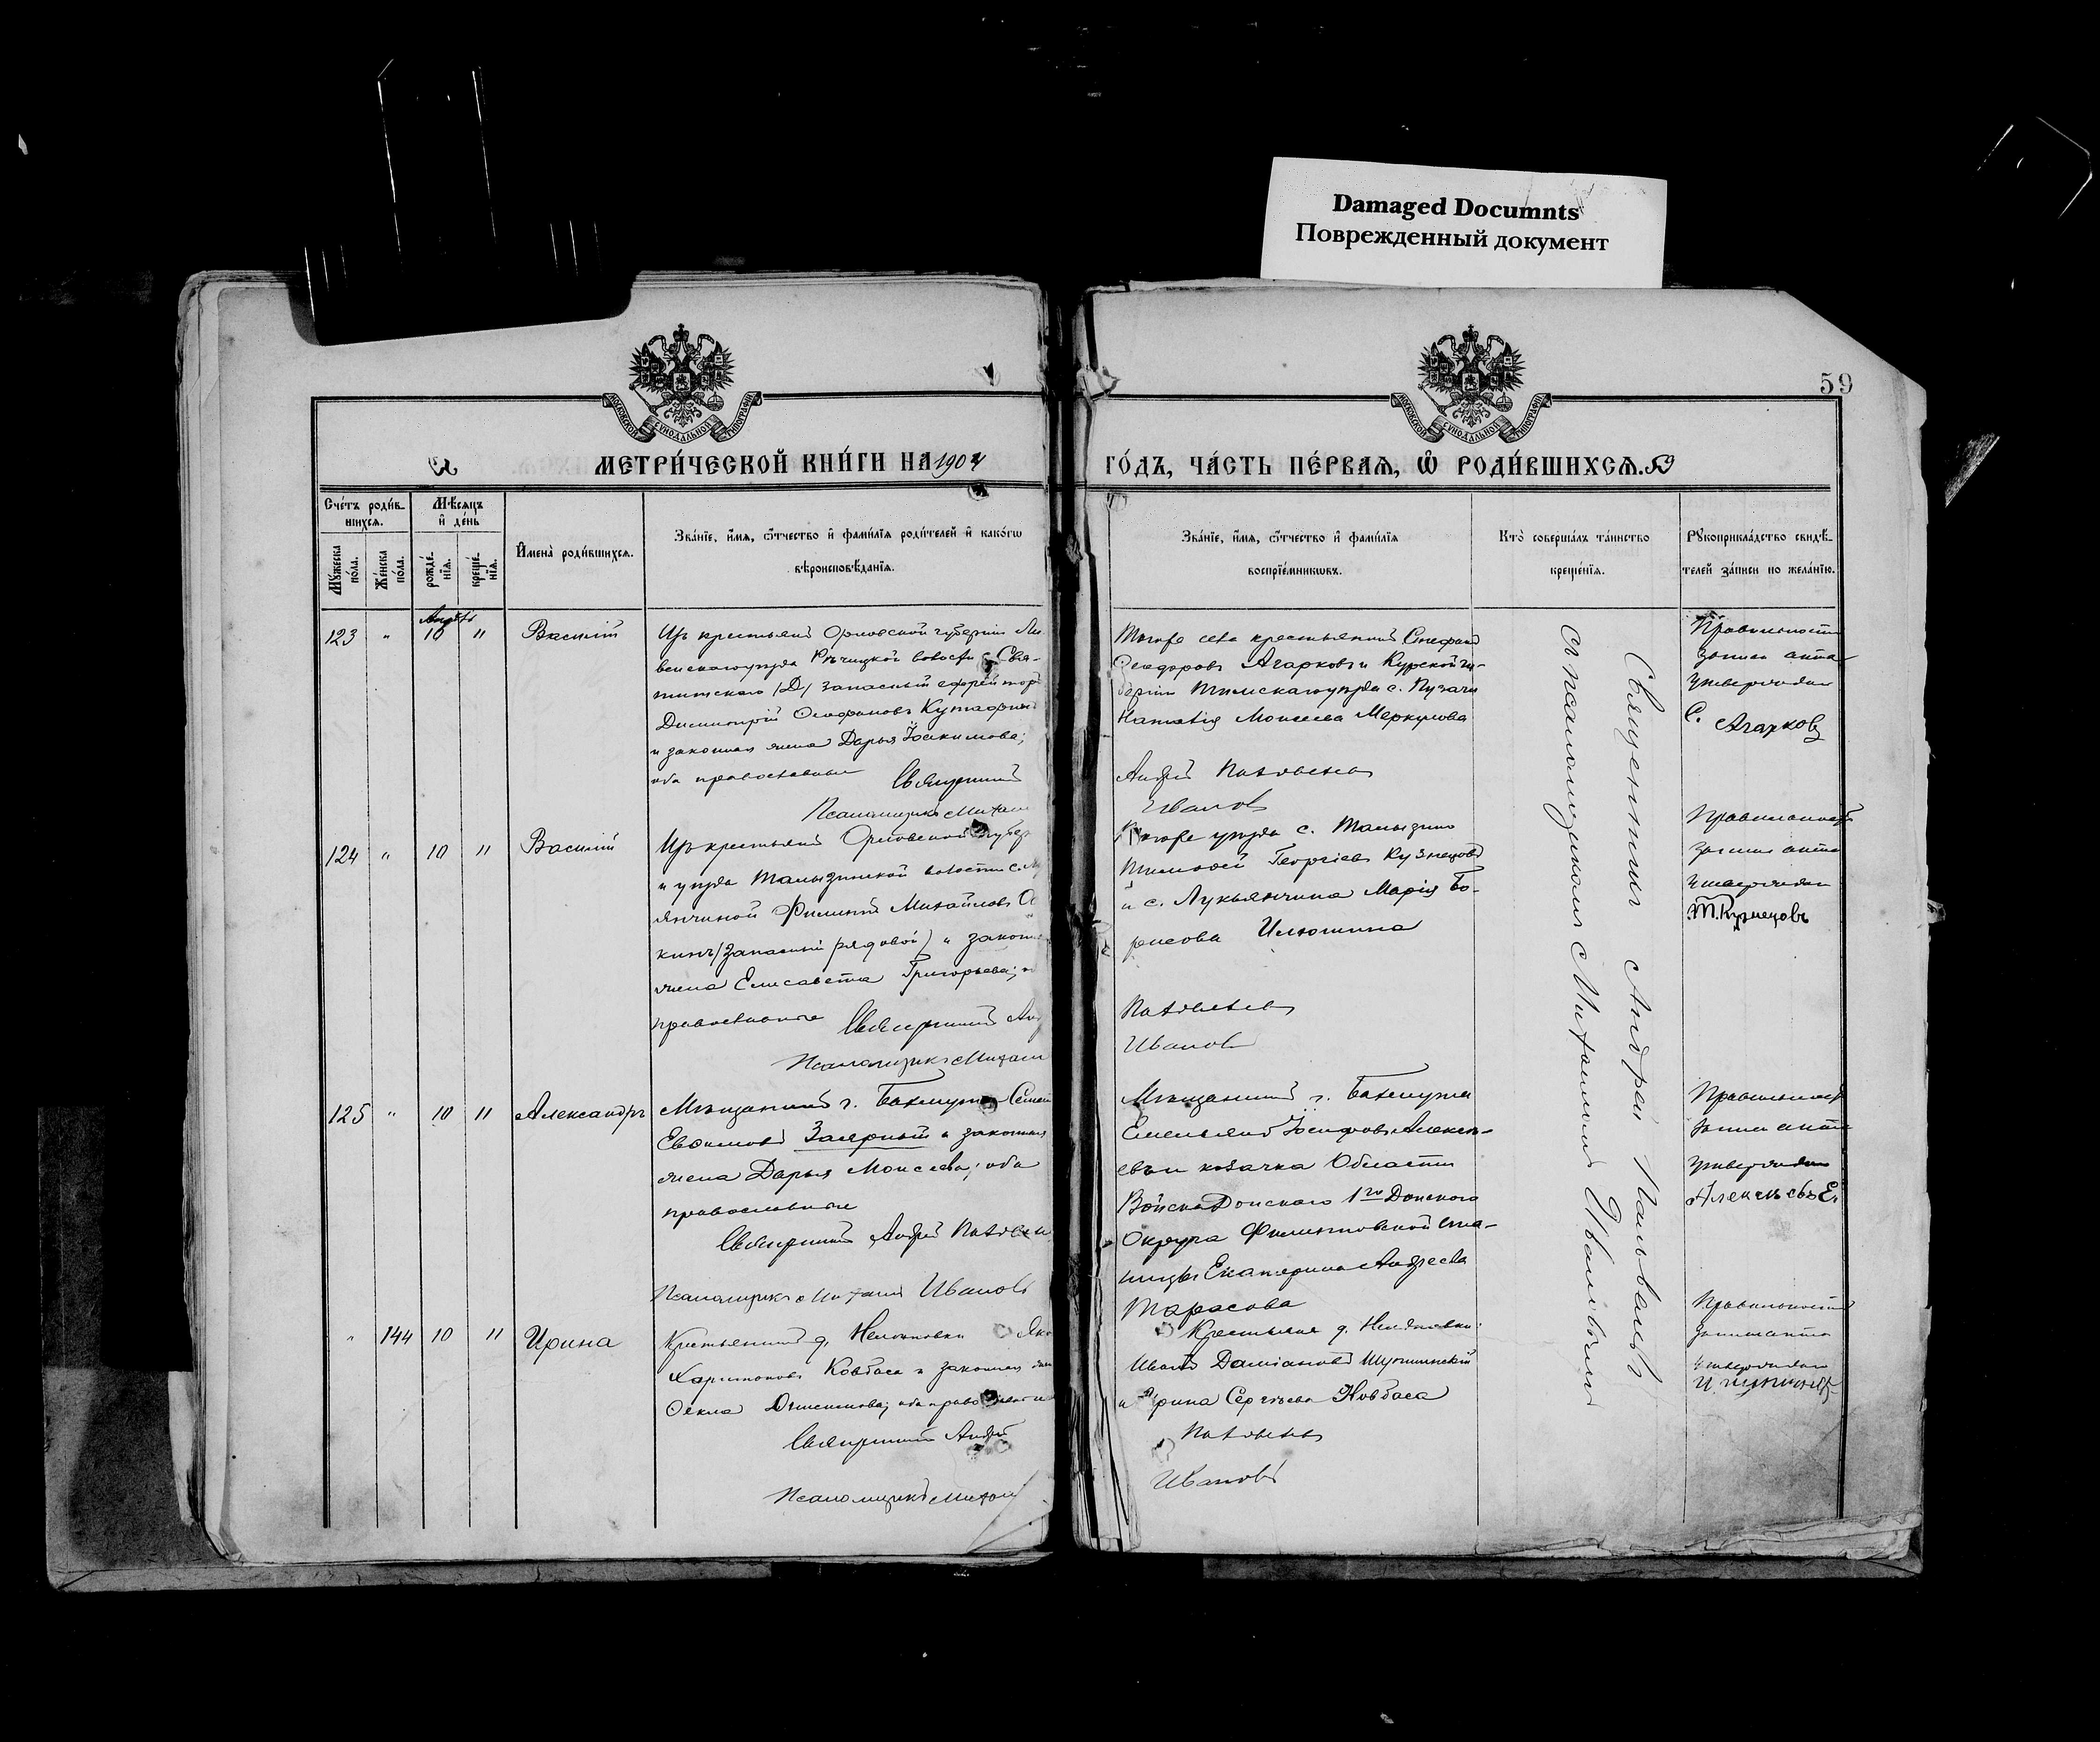 Damaged Documnts
Поврежденный документ
59
МЕТРИ́ЧЕСКОЙ КНИ́ГИ НА 1904
ГО́ДЪ, ЧА́СТЬ ПЕ́РВАЯ, Ѽ РОДИ́ВШИХСѦ.
Сче́тъ роди́в-
шихсѧ.
Мѣ́сѧцъ
и҆ де́нь
Мꙋ́жеска
по́ла.
Же́нска
по́ла.
рожде́-
нїѧ.
креще́-
нїѧ.
И҆мена̀ роди́вшихсѧ.
Зва́нїе, и҆́мѧ, ѻ҆́тчество и҆ фами́лїѧ роди́телей и҆ како́гѡ
вѣроисповѣ́данїѧ.
Зва́нїе, и҆́мѧ, ѻ҆́тчество и҆ фами́лїѧ
воспрїе́мникѡвъ.
Кто̀ соверша́лъ та́инство
креще́нїѧ.
Рꙋкоприкла́дство свидѣ́-
телей за́писи по жела́нїю.
123 " 10 11 Василій
Изъ крестьянъ Орловской губерніи Ли
венскаго уѣзда Рѣчицкой волости с. Свя-
запасный ефрейтор
Димитрій Ѳеофановъ Кутафин
и законная жена Дарья Іоакимова;
оба православные Священникъ
Псаломщикъ Михаи
Того же села крестьянинъ Стефанъ
Ѳеодоровъ Агарковъ и Курской гу-
берніи Тимскаго уѣзда с. Пузачи
Наталія Моисеева Меркулова
Андрей Павловъ
Ивановъ
Правильность
записи акта
утверждаю
С. Агарковъ
124 " 10 11 Василій
Изъ крестьянъ Орловской губер
и уѣзда волости с.
янчиной Филиппъ Михайловъ
кинъ (запасный рядовой) и законн
жена Елисавета Григорьева;
православные Священникъ Анд
Псаломщикъ Михаи
Того же уѣзда с.
Тимофей Георгіевъ Кузнецовъ
и с. Лукьянчина Марія Бо-
рисова Илюшина
Ивановъ
Правильность
записи акта
утверждаю
Т. Кузнецовъ
125 " 10 11 Александръ
Мѣщанинъ г. Бахмута Семен
Евѳимовъ Заярный и законная
жена Дарья Моисеева; оба
православные
Священникъ Андрей
Псаломщикъ Михаилъ Ивановъ
Мѣщанинъ г. Бахмута
Емельянъ Іосифовъ Алексѣ-
евъ и козачка Области
Войска Донскаго 1го Донского
Округа Филипповской ста-
ницы Екатерина Андреева
Тарасова
Правильность
записи акта
утверждаю
Алексѣевъ Е.
" 144 10 11 Ирина
Крестьянинъ д. Нелѣповки Яко
Харитоновъ Ковбаса и законная жен
Ѳекла оба православные
Священникъ Андрей
Псаломщикъ Михаил
Крестьяне д. Нелѣповки:
Иванъ Даміановъ
и Ирина Сергѣева Ковбаса
Ивановъ
Правильность
записи акта
утверждаю
Священникъ Андрей
съ псаломщикомъ Михаиломъ Ивановымъ